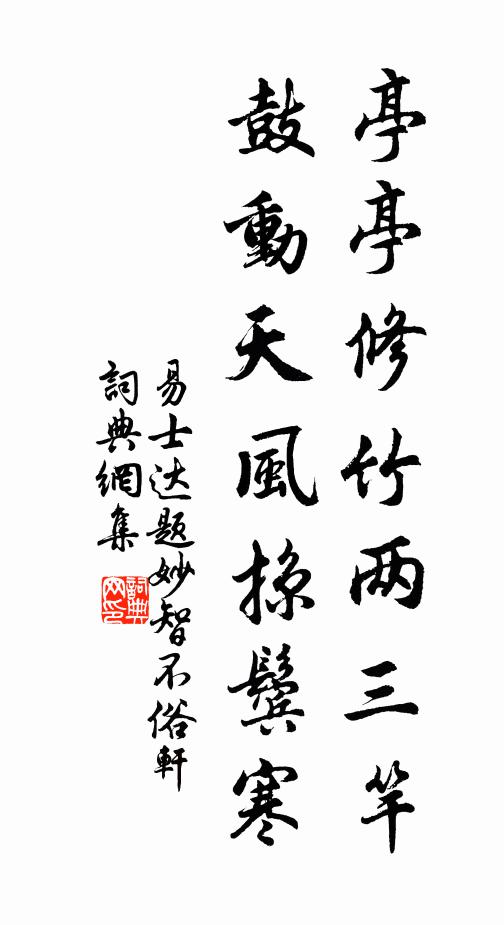 亭亭修竹两三竿
鼓動天風掠鬓寒
易士达题妙智不俗軒
詞典網集
詞典网印